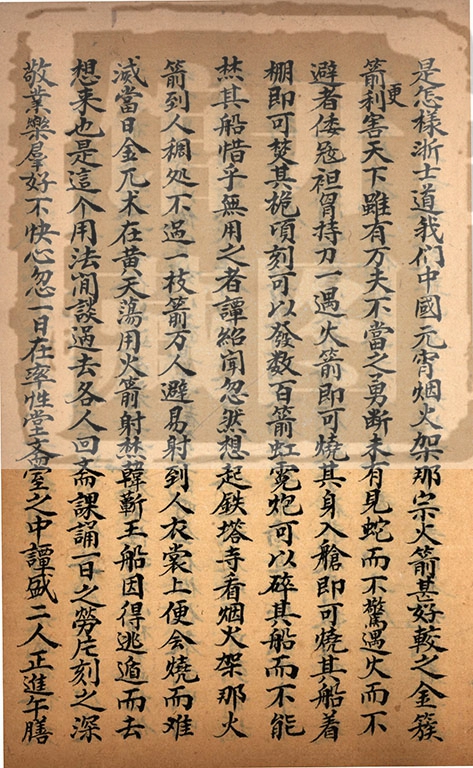 是怎樣浙士道我们中國元宵烟火架那宗火箭甚好較之金簇
箭更利害天下雖有万夫不當之勇断未有見蛇而不驚遇火而不
避者倭寇袒胷持刀一遇火箭即可燒其身入艙即可燒其船着
棚即可焚其桅頃刻可以發数百箭虹霓炮可以碎其船而不能
焚其船惜乎無用之者譚紹聞忽然想起鉄塔寺看烟火架那火
箭到人稠処不過一枝箭万人避易射到人衣裳上便会燒而难
滅當日金兀术在黄天蕩用火箭射焚韓蘄王船因得逃遁而去
想来也是這个用法闲談過去各人回斋課誦一日之勞片刻之深
敬業樂羣好不快心忽一日在率性堂斋室之中譚盛二人正進午膳